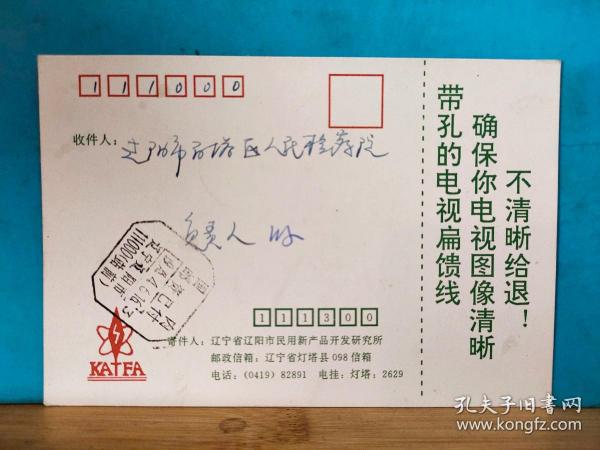 111000
收件人：辽阳市白塔区人民检察院
负责人 收
111300
寄件人：辽宁省辽阳市民用新产品开发研究所
邮政信箱：辽宁省灯塔县098信箱
电话：(0419) 82891 电挂：灯塔：2629
KATFA
国内
邮资已付
辽宁辽阳市
111000(站前)
不清晰给退！
确保你电视图像清晰
带孔的电视扁馈线
孔夫子旧书网
www.kongfz.com